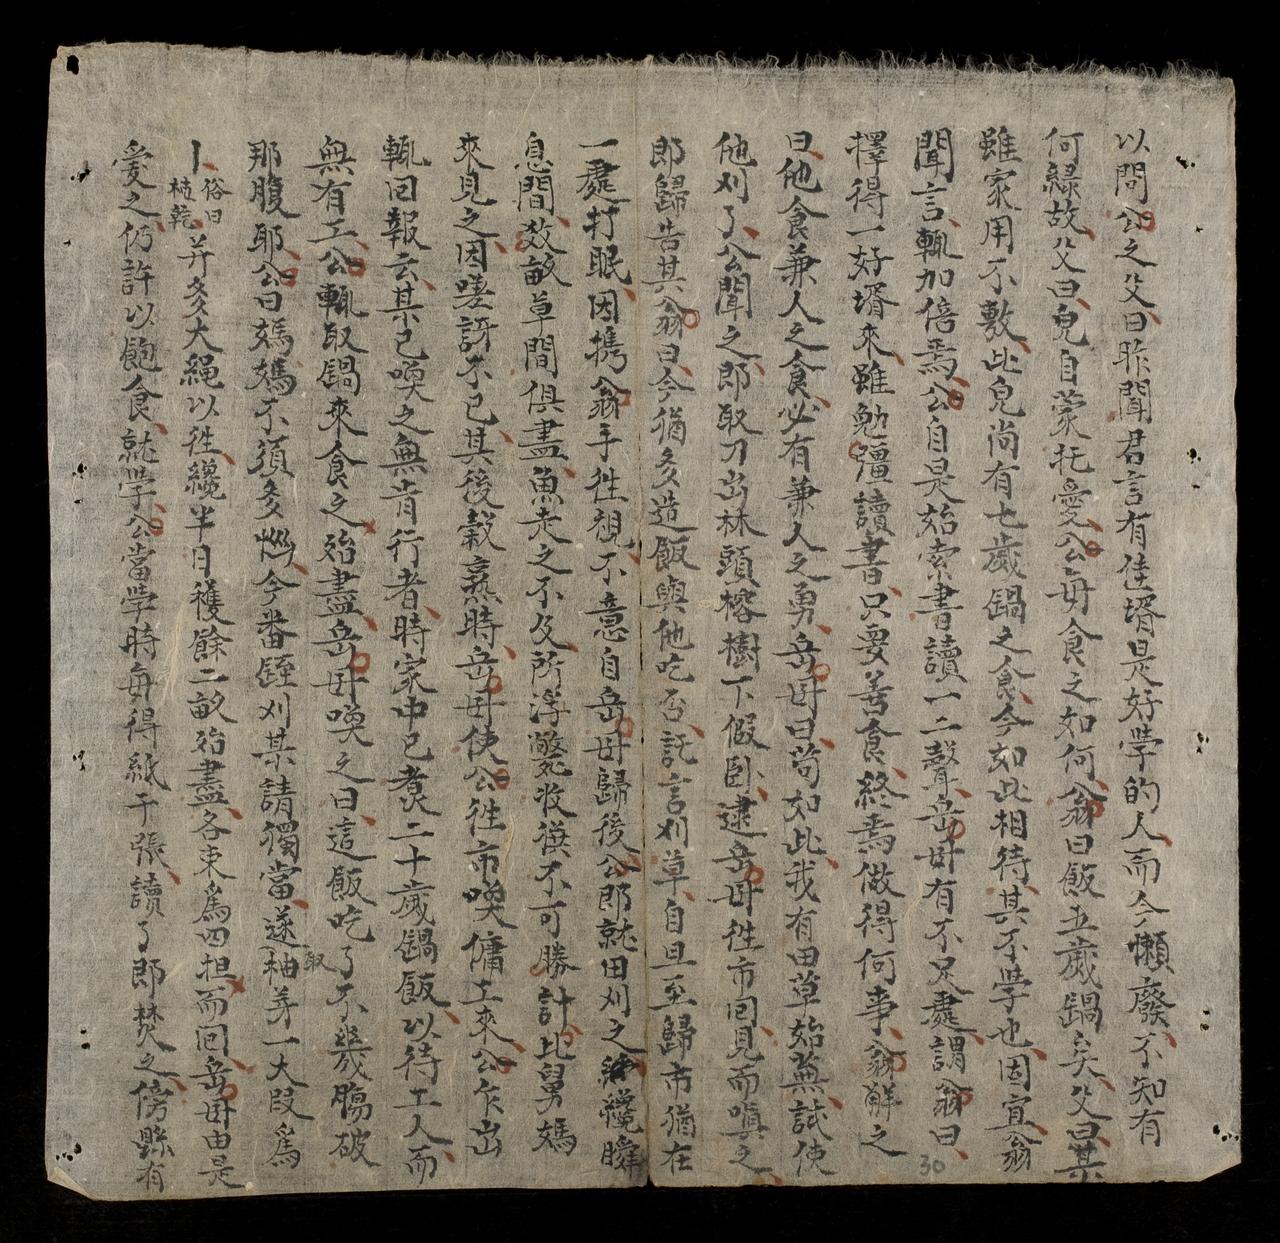 以問公之父曰昨聞君言有佳壻是好學的人而今懶廢不知有
何緣故父曰兒自蒙托愛公每食之如何翁曰飯五歲鍋矣父曰某
雖家用不敷此兒尚有七歲鍋之食今如此相待其不學也固宜翁
聞言輒加倍焉公自是始索書讀一二聲岳毋有不足處謂翁曰
擇得一好壻來雖勉彊讀書只要善食終焉做得何事翁解之
曰他食兼人之食必有兼人之勇岳毋曰苟如此我有田草始蕪試使
他刈了公聞之即取刀出林頭榕樹下假卧逮岳毋徃市囘見而嗔之
即歸告其翁曰今猶多造飯與他吃否託言刈草自旦至歸市猶在
一處打眠因携翁手徃視不意自岳毋歸後公即就田刈之纔瞬
息間數畝草間俱盡魚走之不及所浮斃收摸不可勝計比舅媽
來見之因嗟訝不已其後穀熟時岳毋使公徃市喚傭工來公乍出
輒囘報云某已喚之無肯行者時家中已煮二十歲鍋飯以待工人而
無有工公輒取鍋來食之殆盡岳毋喚之曰這飯吃了不幾腸破
那腹耶公曰媽媽不須多 今番 刈某請獨當遂取柚芽一大段爲
卜俗曰 乾并多大繩以徃纔半日穫餘二畝殆盡各束爲四担而囘岳毋由是
愛之仍許以飽食就學公當學時每得紙千張讀了即焚之傍縣有
30